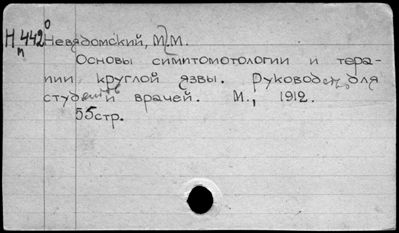 Н 442 Невядомский, М.М.
Основы симптомотологии и тера-
пии круглой язвы. Руковод. для
студ. и врачей. М., 1912.
55 стр.